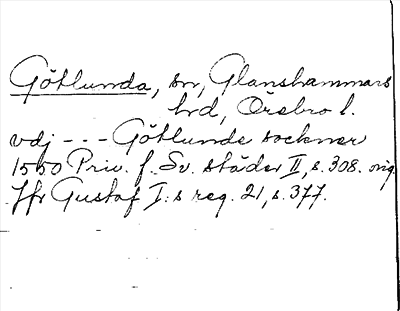 Götlunda, sn, Glanshammars
hrd, Örebro l.
vdj - - - Götlunde sockner
1550 Priv. f. Sv. städer II, s. 308. orig.
Jfr Gustaf I:s reg. 21, s. 377.